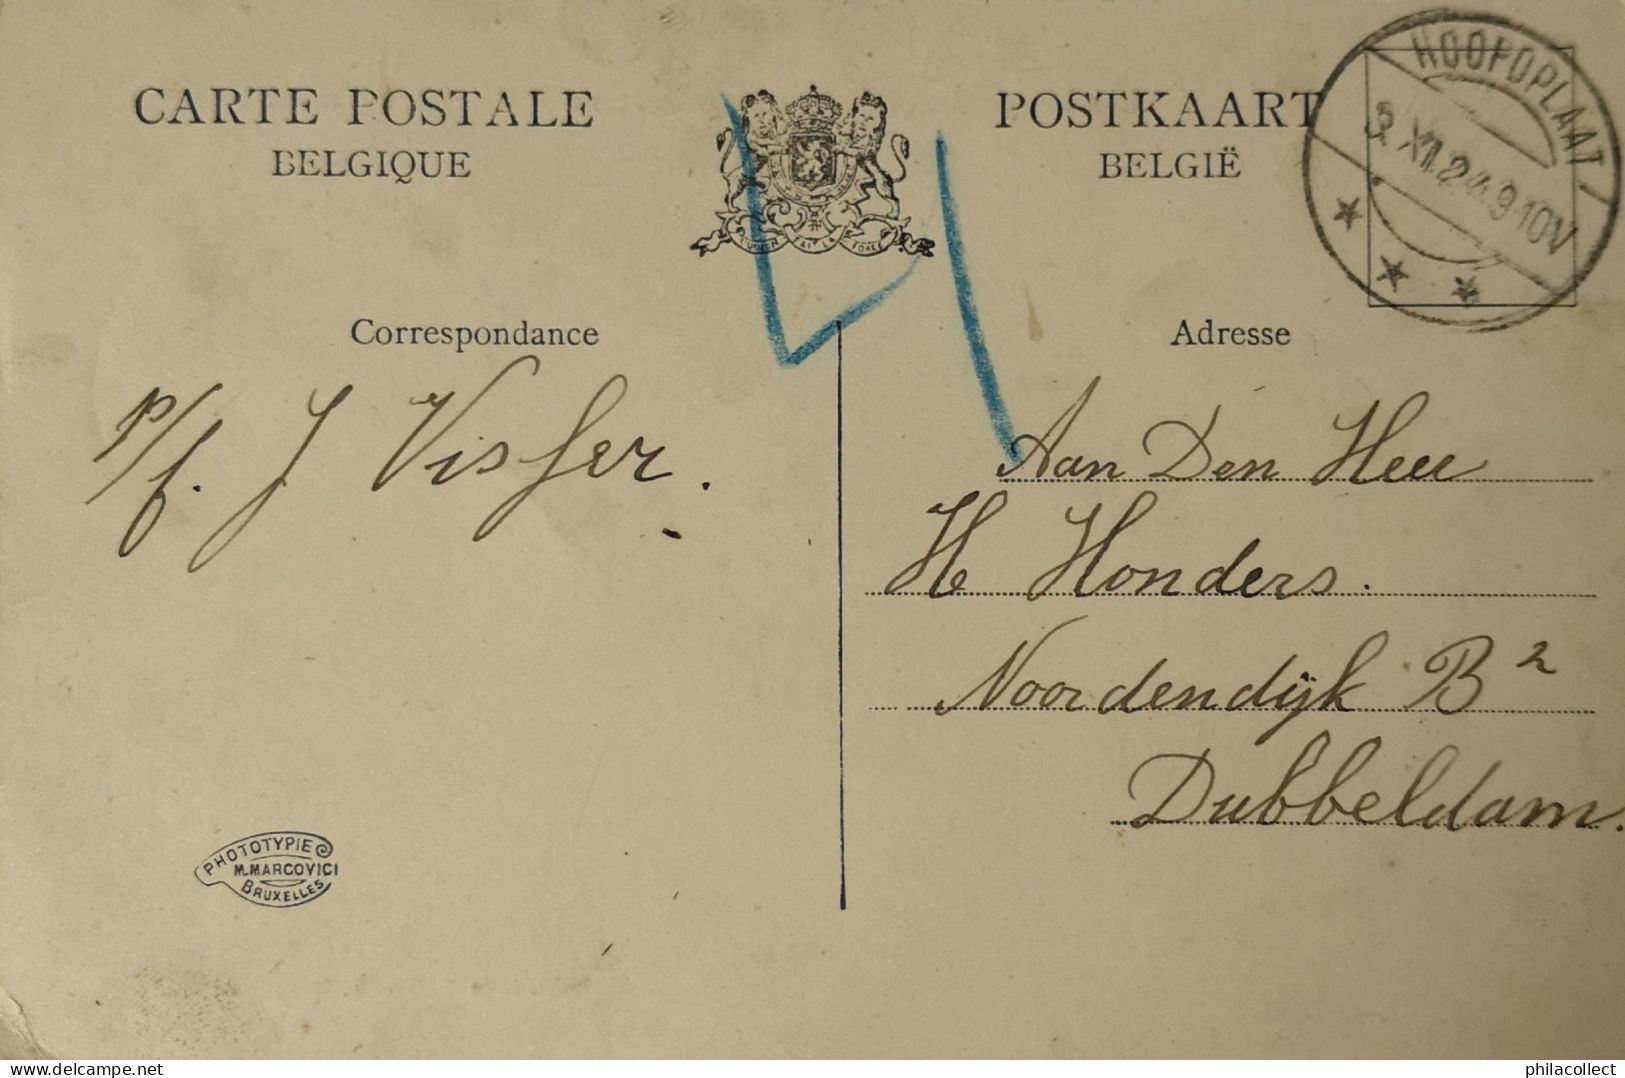 CARTE POSTALE
BELGIQUE
POSTKAART
BELGIË
HOOFDPLAAT
3.XII.24.9-10V
Correspondance
Adresse
p/f. J Visser.
Aan Den Heer
H Honders.
Noordendijk B2
Dubbeldam.
PHOTOTYPIE
M.MARCOVICI
BRUXELLES
philacollect